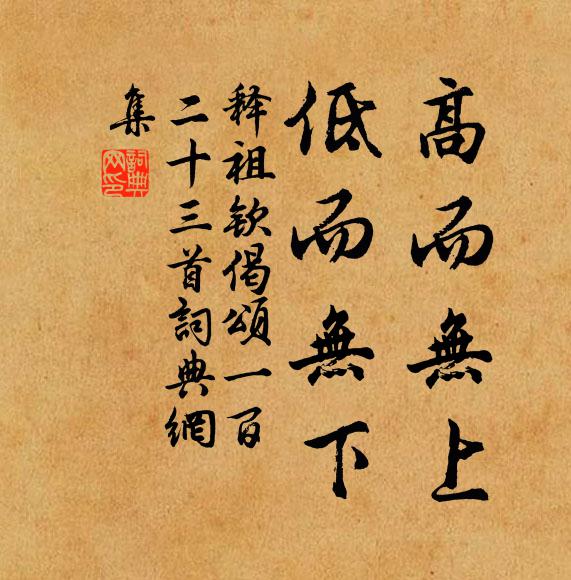 高而無上
低而無下
释祖钦偈頌一百
二十三首詞典網
集
詞典
网印